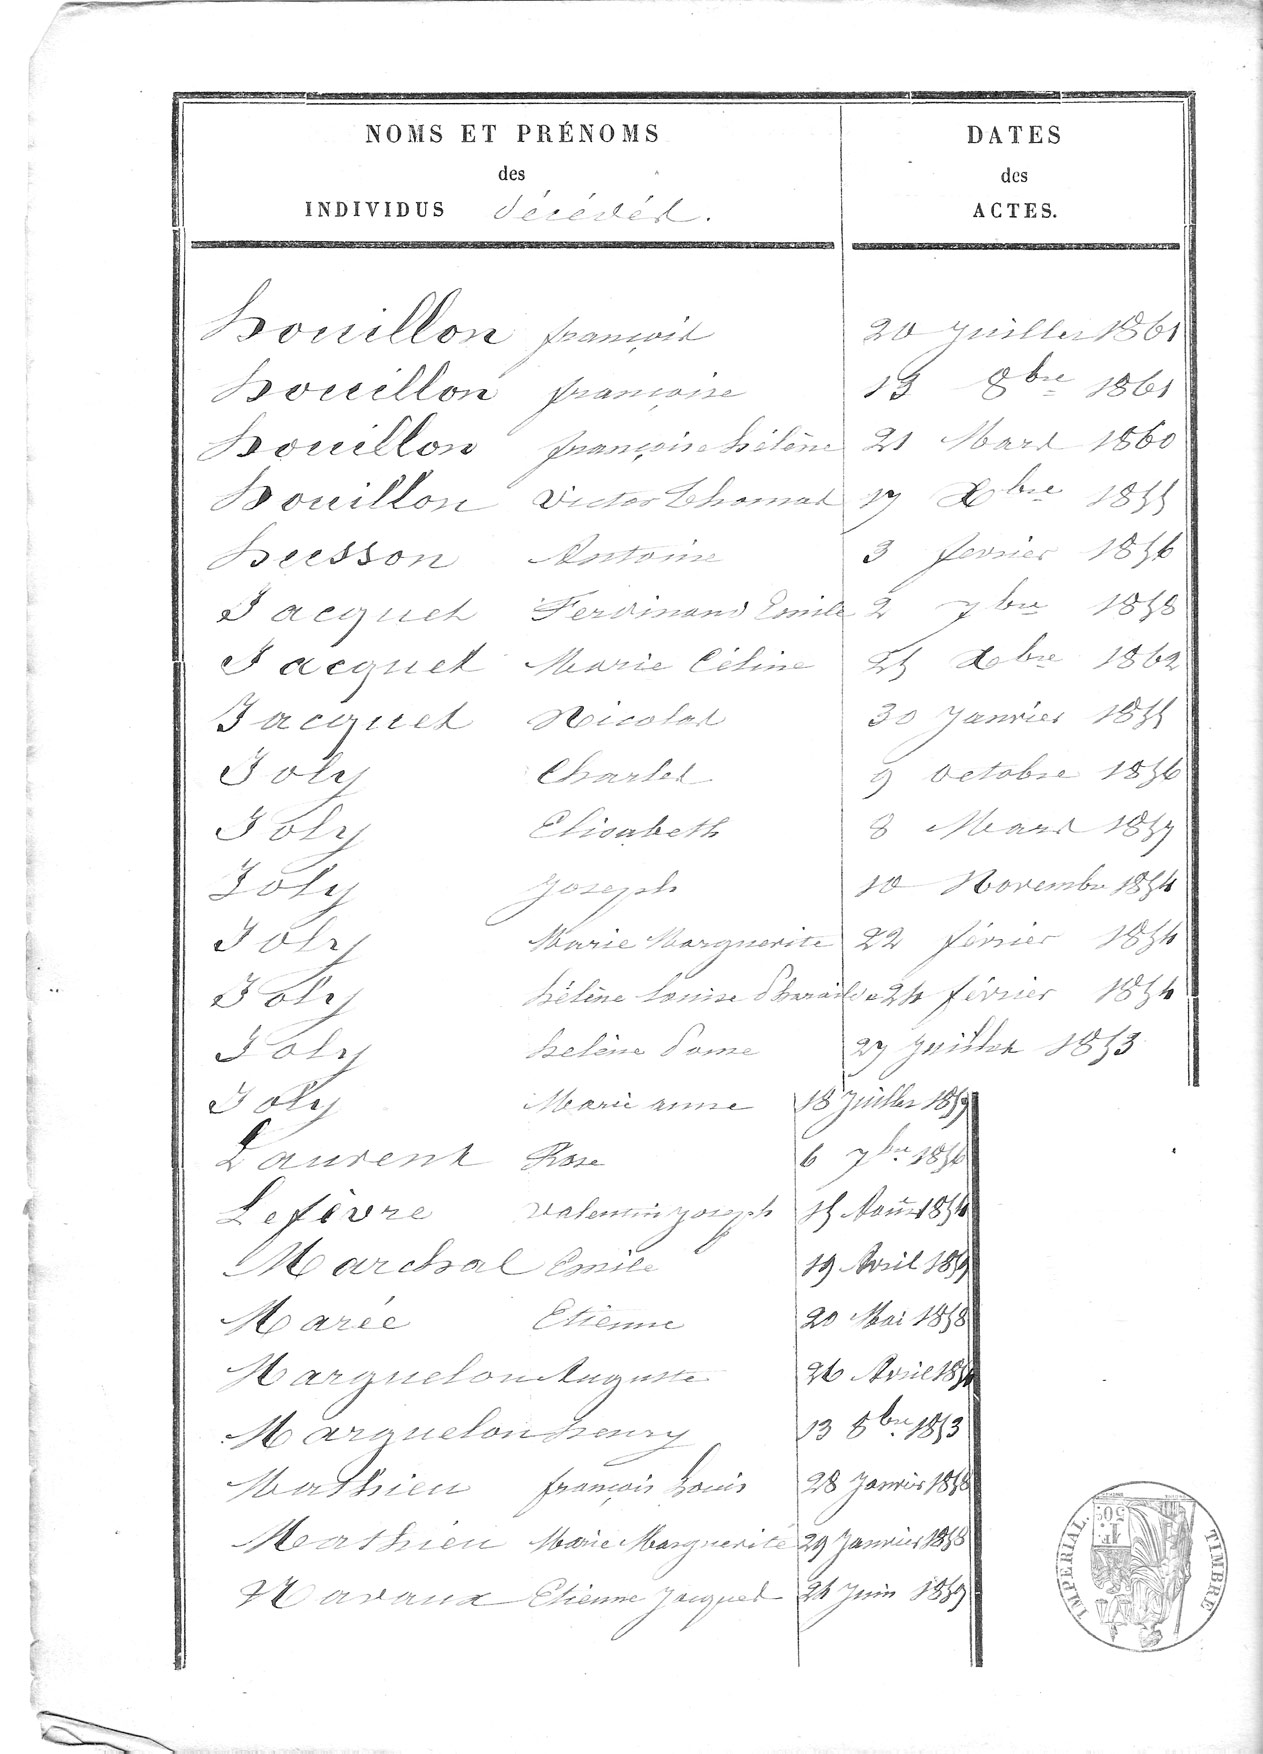 NOMS ET PRÉNOMS
des
INDIVIDUS décédés.
DATES
des
ACTES.
houillon françois 20 Juillet 1861
houillon françoise 13 8bre 1861
houillon françoise hélène 21 Mars 1860
houillon Victor Thomas 17 Xbre 1855
husson Antoine 3 fevrier 1856
Jacquet Ferdinand Emile 2 7bre 1858
Jacquet Marie Céline 25 Xbre 1862
Jacquet Nicolas 30 Janvier 1855
Joly Charles 9 octobre 1856
Joly Elisabeth 8 Mars 1857
Joly Joseph 10 Novembre 1854
Joly Marie Marguerite 22 février 1854
Joly hélène Louise Pharaïlde 24 février 1854
Joly helène 27 Juillet 1853
Joly Marie anne 18 Juillet 1859
Laurent Rose 6 7bre 1856
Lefèvre Valentin Joseph 15 Août 1854
Marchal Emile 19 Avril 1859
Marée Etienne 20 Mai 1858
Marquelon Auguste 26 Avril 1854
Marquelon henry 13 8bre 1853
Mathieu françois Louis 28 Janvier 1858
Mathieu Marie Marguerite 29 Janvier 1858
Navaux Etienne Jacques 24 Juin 1859
TIMBRE IMPERIAL.
1F. 50c.